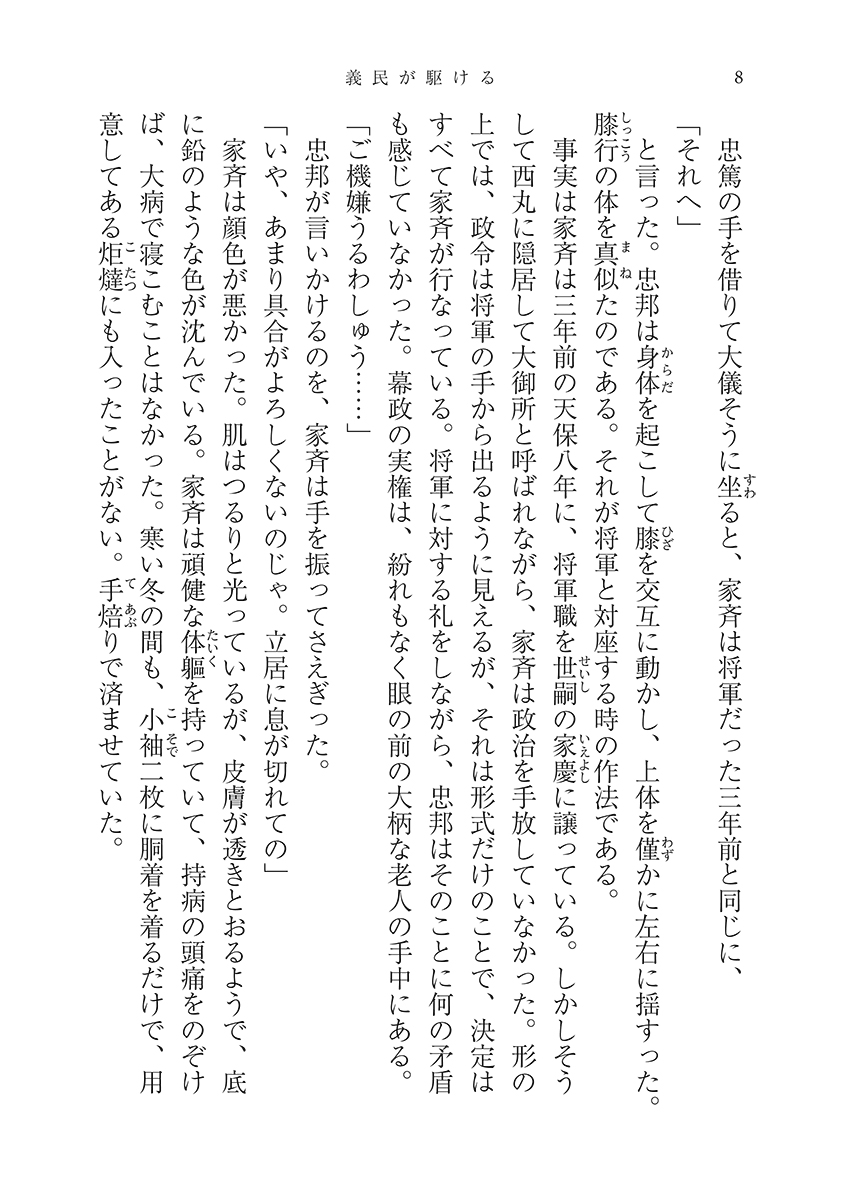 義民が駆ける
8
忠篤の手を借りて大儀そうに坐ると、家斉は将軍だった三年前と同じに、
「それへ」
と言った。忠邦は身体を起こして膝を交互に動かし、上体を僅かに左右に揺すった。
膝行の体を真似たのである。それが将軍と対座する時の作法である。
事実は家斉は三年前の天保八年に、将軍職を世嗣の家慶に譲っている。しかしそう
して西丸に隠居して大御所と呼ばれながら、家斉は政治を手放していなかった。形の
上では、政令は将軍の手から出るように見えるが、それは形式だけのことで、決定は
すべて家斉が行なっている。将軍に対する礼をしながら、忠邦はそのことに何の矛盾
も感じていなかった。幕政の実権は、紛れもなく眼の前の大柄な老人の手中にある。
「ご機嫌うるわしゅう……」
忠邦が言いかけるのを、家斉は手を振ってさえぎった。
「いや、あまり具合がよろしくないのじゃ。立居に息が切れての」
家斉は顔色が悪かった。肌はつるりと光っているが、皮膚が透きとおるようで、底
に鉛のような色が沈んでいる。家斉は頑健な体軀を持っていて、持病の頭痛をのぞけ
ば、大病で寝こむことはなかった。寒い冬の間も、小袖二枚に胴着を着るだけで、用
意してある炬燵にも入ったことがない。手焙りで済ませていた。